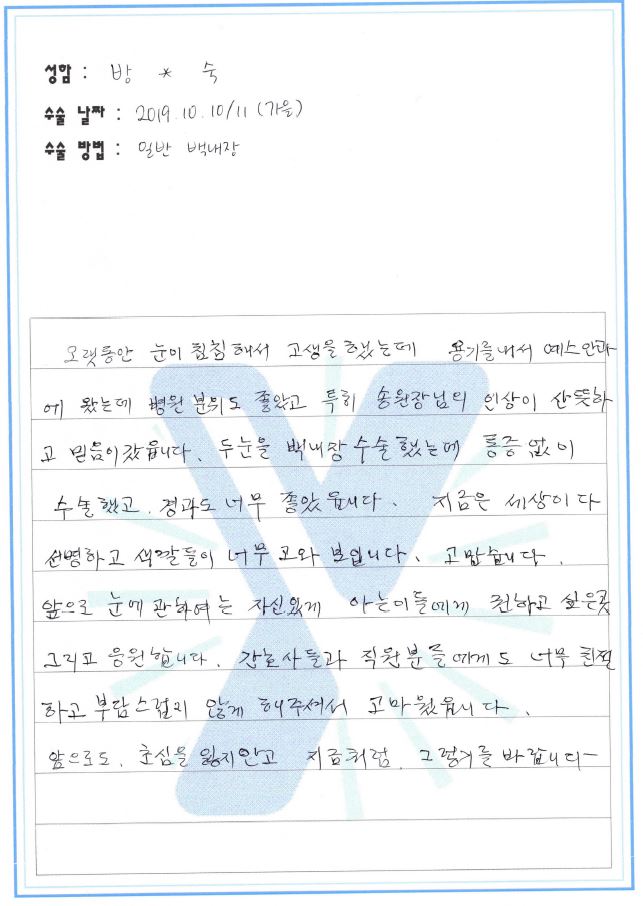 성함 : 방 * 숙
수술 날짜 : 2019. 10. 10/11 (가을)
수술 방법 : 일반 백내장
오랫동안 눈이 침침해서 고생을 했는데 용기를내서 예스안과
에 왔는데 병원 분위도 좋았고 특히 송원장님의 인상이 산뜻하
고 믿음이갔읍니다. 두눈을 백내장 수술했는데 통증 없이
수술했고, 경과도 너무 좋았읍니다. 지금은 세상이 다
선명하고 색깔들이 너무 고와 보입니다. 고맙습니다.
앞으로 눈에 관하여는 자신있게 아는이들에게 전하고 싶은곳
그리고 응원합니다. 간호사들과 직원분들에게도 너무 친절
하고 부담스럽지 않게 해주셔서 고마웠읍니다.
앞으로도, 초심을 잃지안고 지금처럼, 그렇기를 바랍니다-